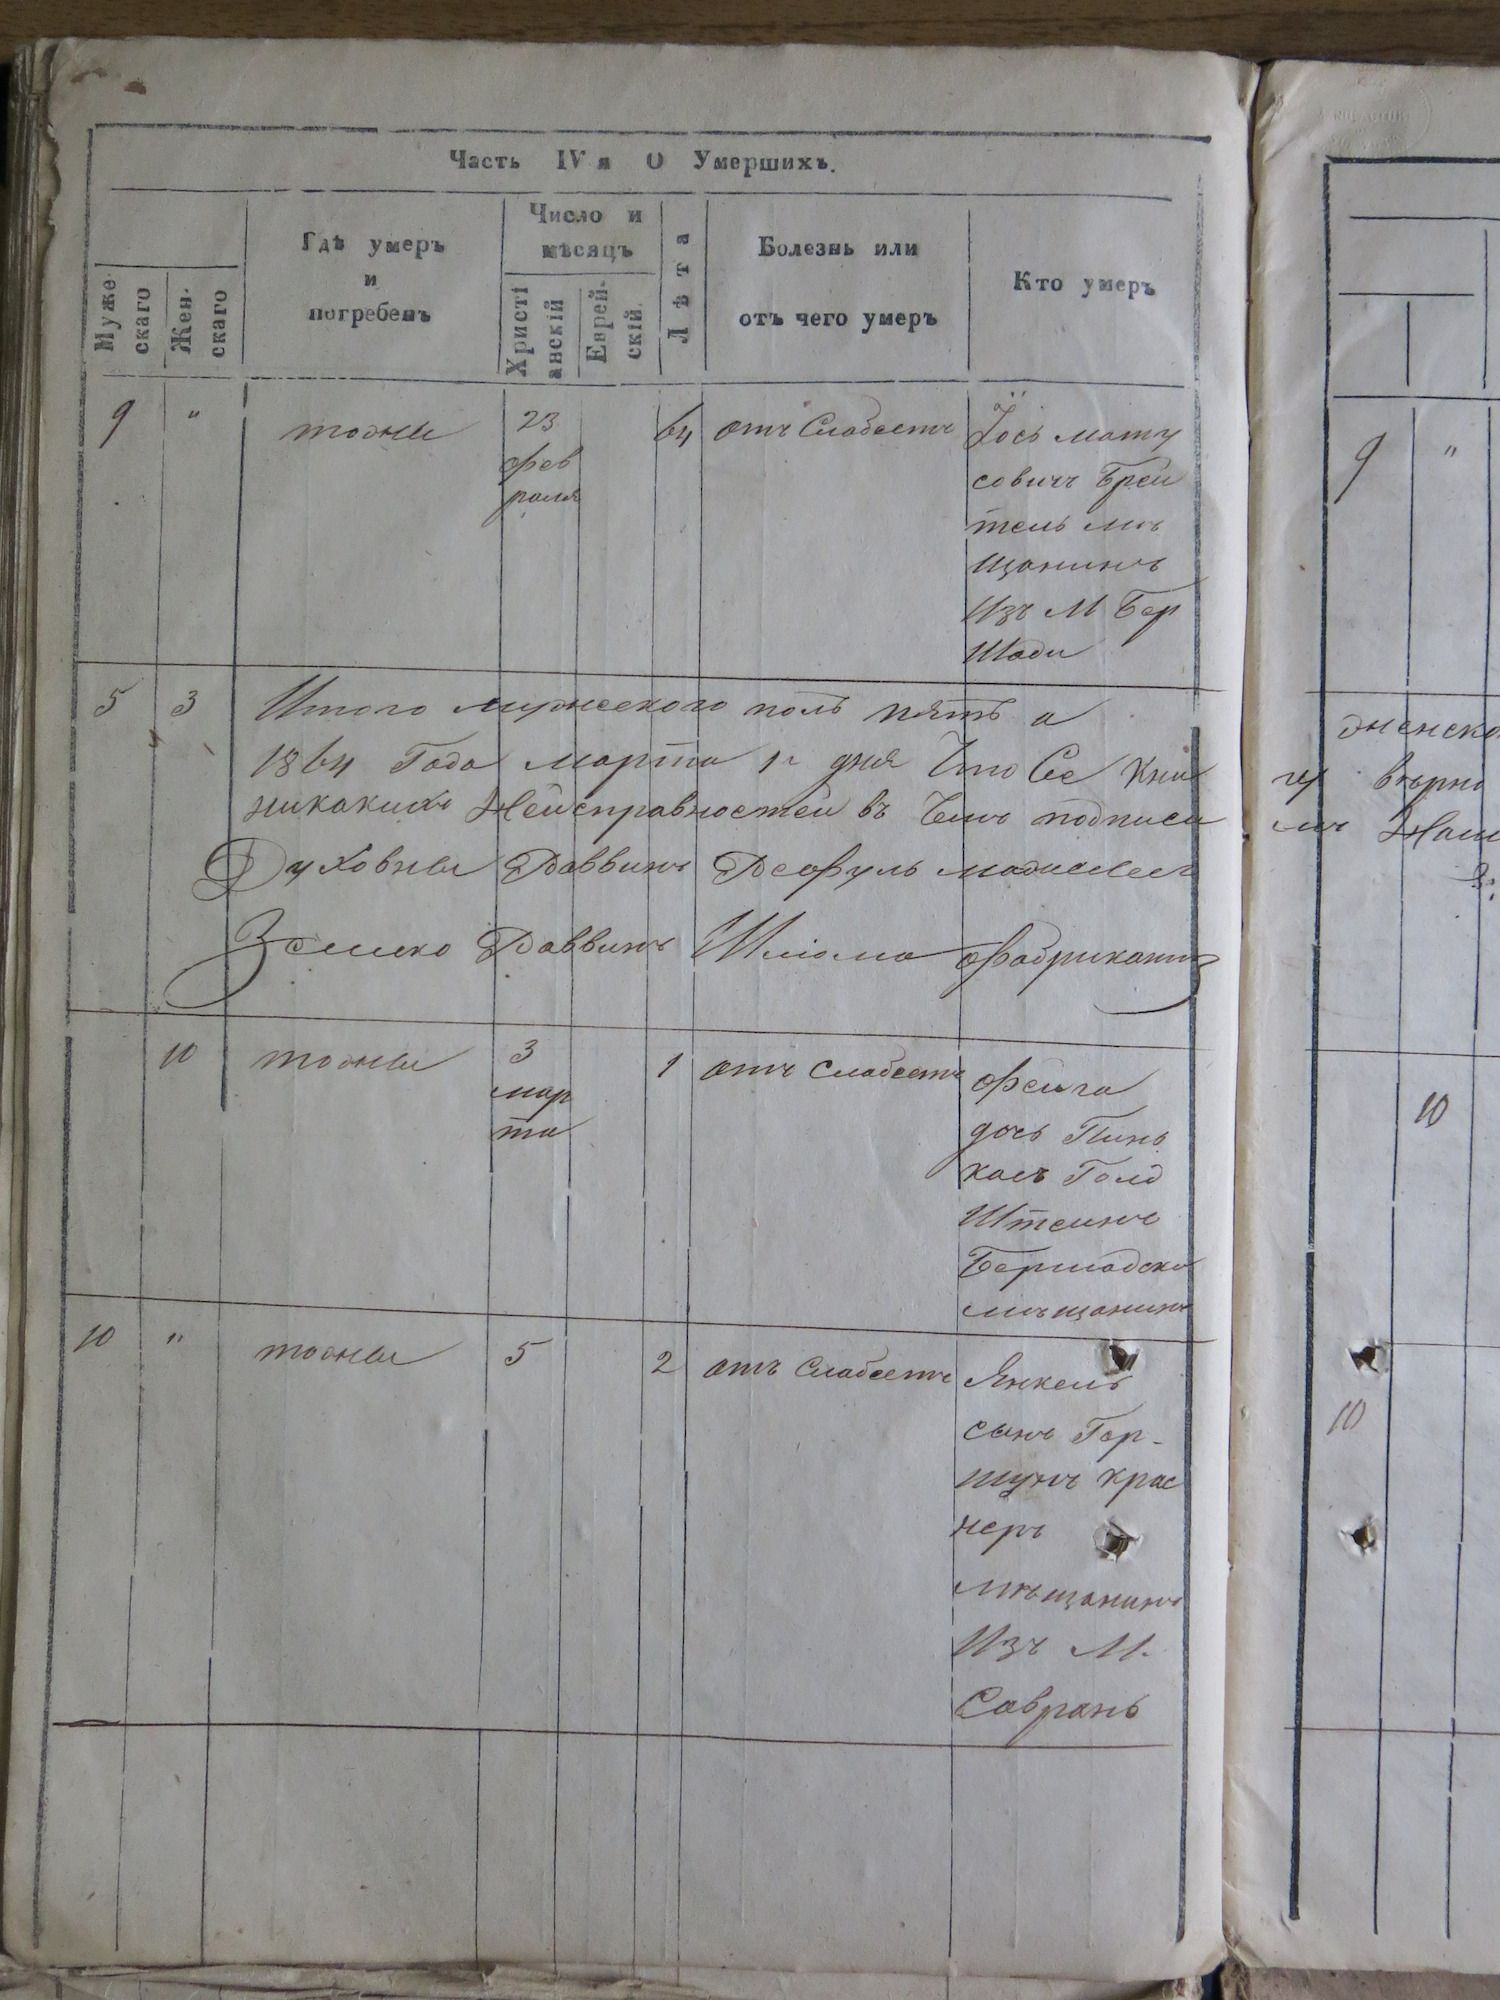 Часть IV я О Умершихъ.
Муже скаго
Жен- скаго
Гдѣ умеръ
и
погребенъ
Число и
мѣсяцъ
Христі анскій
Еврей- скій
Лѣта
Болезнь или
отъ чего умеръ
Кто умеръ
9 " тожны 23 64 отъ Слабости Іось Мату
фев совичъ Брей
раля тель мѣ
щанинъ
Изъ М Бер
Шади
5 3 Итого мужескаго полъ пять а
1864 Года Марта 1 дня Что Се Кни
никакихъ Неисправностей въ Чемъ подписи
Духовный Раввинъ
Раввинъ Шліома Фабрикантъ
10 тожны 3 1 отъ Слабости Фейга
мар дочь Пинь
та касъ Голд
Штеинъ
Бершадски
мѣщанинъ
10 " тожны 5 2 отъ Слабости Янкель
сынъ Гер-
шунъ Крас
неръ
мѣщанинъ
Изъ М.
Саврань
9 "
женска
вѣрно
10
10